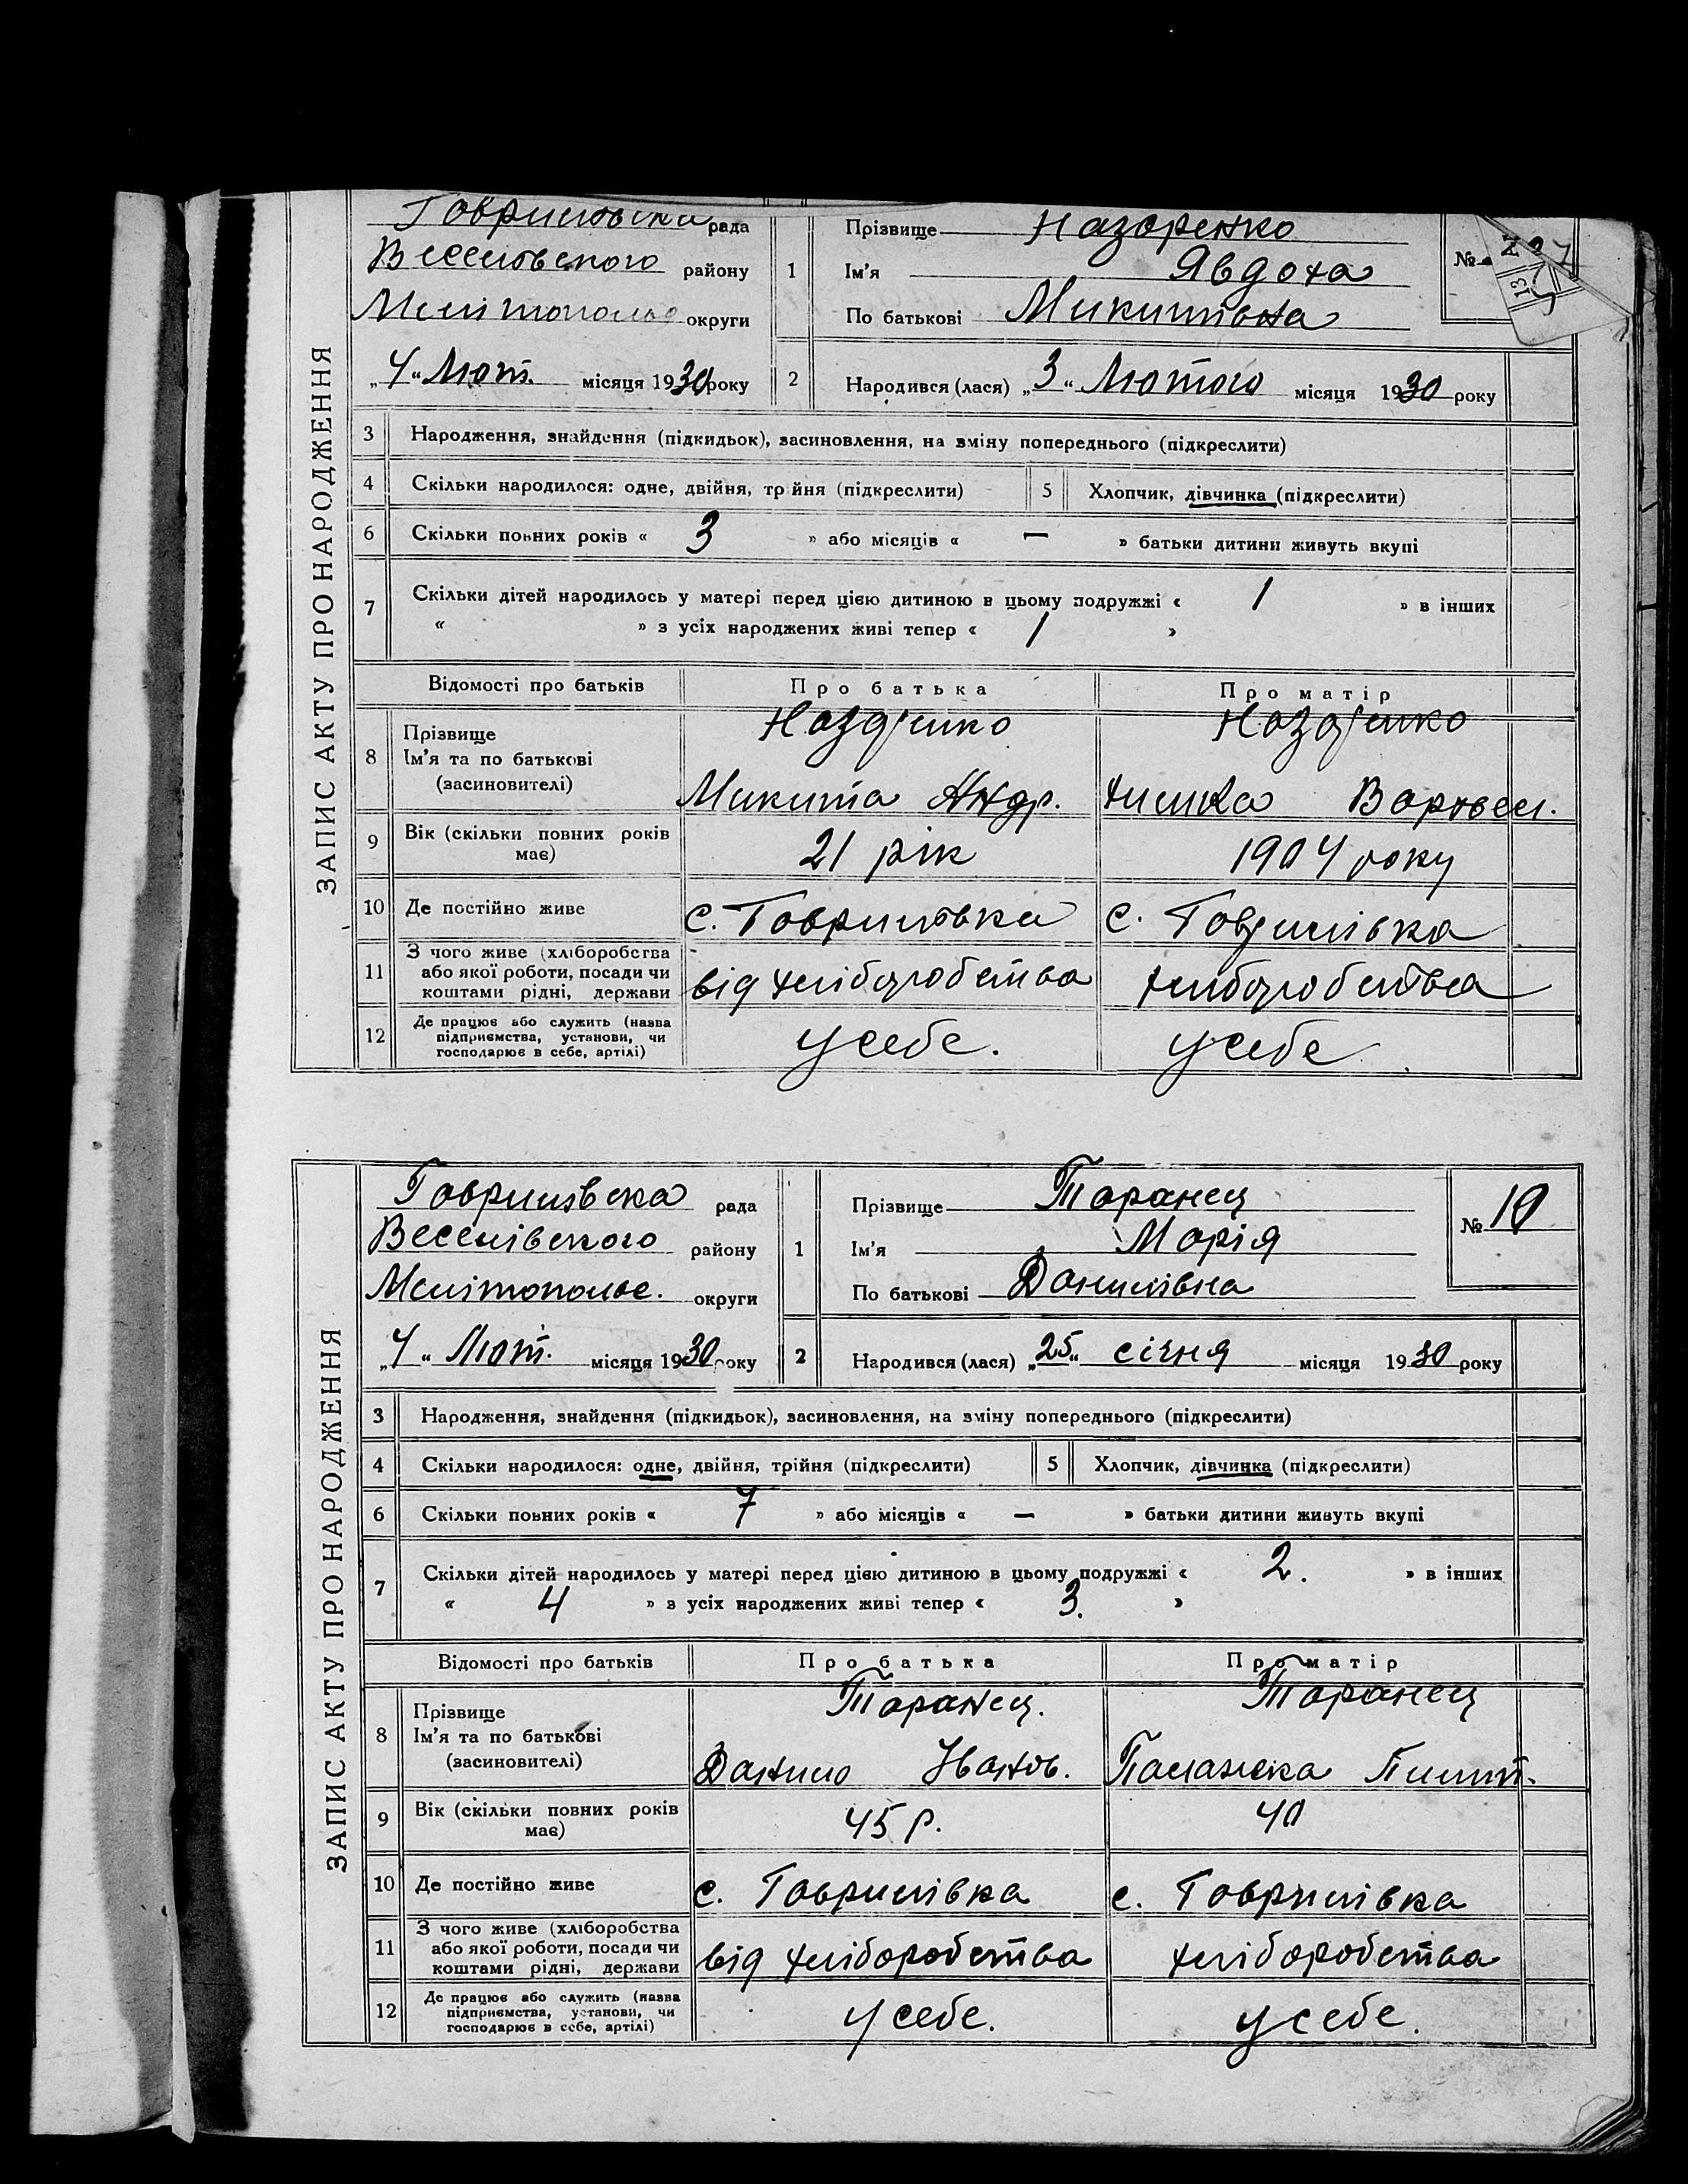 ЗАПИС АКТУ ПРО НАРОДЖЕННЯ
Гавриловска рада
Веселовского району
Мелітопольс округи
„4“ Лют. місяця 1930 року
1 Прізвище Назаренко
Ім'я Явдоха
По батькові Микитівна
№
2 Народився (лася) „3“ Лютого місяця 1930 року
3 Народження, знайдення (підкидьок), засиновлення, на зміну попереднього (підкреслити)
4 Скільки народилося: одне, двійня, трійня (підкреслити) 5 Хлопчик, дівчинка (підкреслити)
6 Скільки повних років « 3 » або місяців « — » батьки дитини живуть вкупі
7 Скільки дітей народилось у матері перед цією дитиною в цьому подружжі « 1 » в інших
« » з усіх народжених живі тепер « 1 »
Відомості про батьків Про батька Про матір
8 Прізвище Ім'я та по батькові (засиновителі) Назаренко Назаренко
Микита Андр. Варвел.
9 Вік (скільки повних років має) 21 рік 1904 року
10 Де постійно живе с. Гавриловка с. Гаврилівка
11 З чого живе (хліборобства або якої роботи, посади чи коштами рідні, держави від хліборобства хліборобства
12 Де працює або служить (назва підприємства, установи, чи господарює в себе, артілі) у себе. у себе
ЗАПИС АКТУ ПРО НАРОДЖЕННЯ
Гаврилівска рада
Веселівского району
Мелітопольс. округи
„4“ Лют. місяця 1930 року
1 Прізвище Таранец
Ім'я Марія
По батькові Данилівна
№ 10
2 Народився (лася) „25“ січня місяця 1930 року
3 Народження, знайдення (підкидьок), засиновлення, на зміну попереднього (підкреслити)
4 Скільки народилося: одне, двійня, трійня (підкреслити) 5 Хлопчик, дівчинка (підкреслити)
6 Скільки повних років « 7 » або місяців « — » батьки дитини живуть вкупі
7 Скільки дітей народилось у матері перед цією дитиною в цьому подружжі « 2. » в інших
« 4 » з усіх народжених живі тепер « 3. »
Відомості про батьків Про батька Про матір
8 Прізвище Ім'я та по батькові (засиновителі) Таранец. Таранец
Данило Іванов. Палажка Пилип.
9 Вік (скільки повних років має) 45 р. 40
10 Де постійно живе с. Гаврилівка с. Гаврилівка
11 З чого живе (хліборобства або якої роботи, посади чи коштами рідні, держави від хліборобства хліборобства
12 Де працює або служить (назва підприємства, установи, чи господарює в себе, артілі) у себе. у себе.